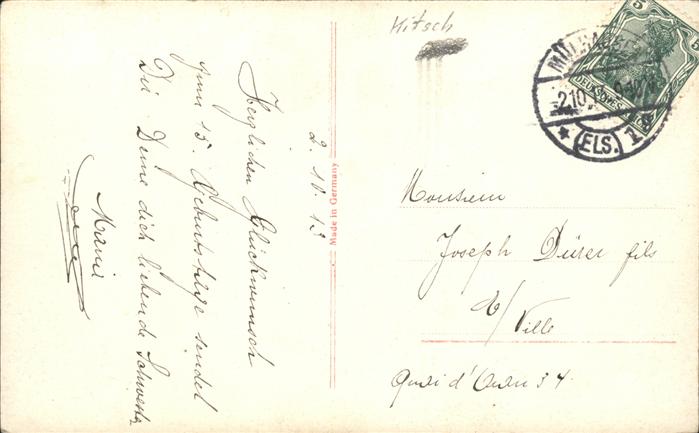 Kitsch
2.10.13
Herzlichen Glückwunsch
zum 15. Geburtstage sendet
Dir Deine dich liebende Schwester
Marie
Made in Germany
MÜLHAUSEN
2.10.
(ELS.)
5
DEUTSCHES REICH
Monsieur
Joseph Dürer fils
E/Ville
Quai d' 34